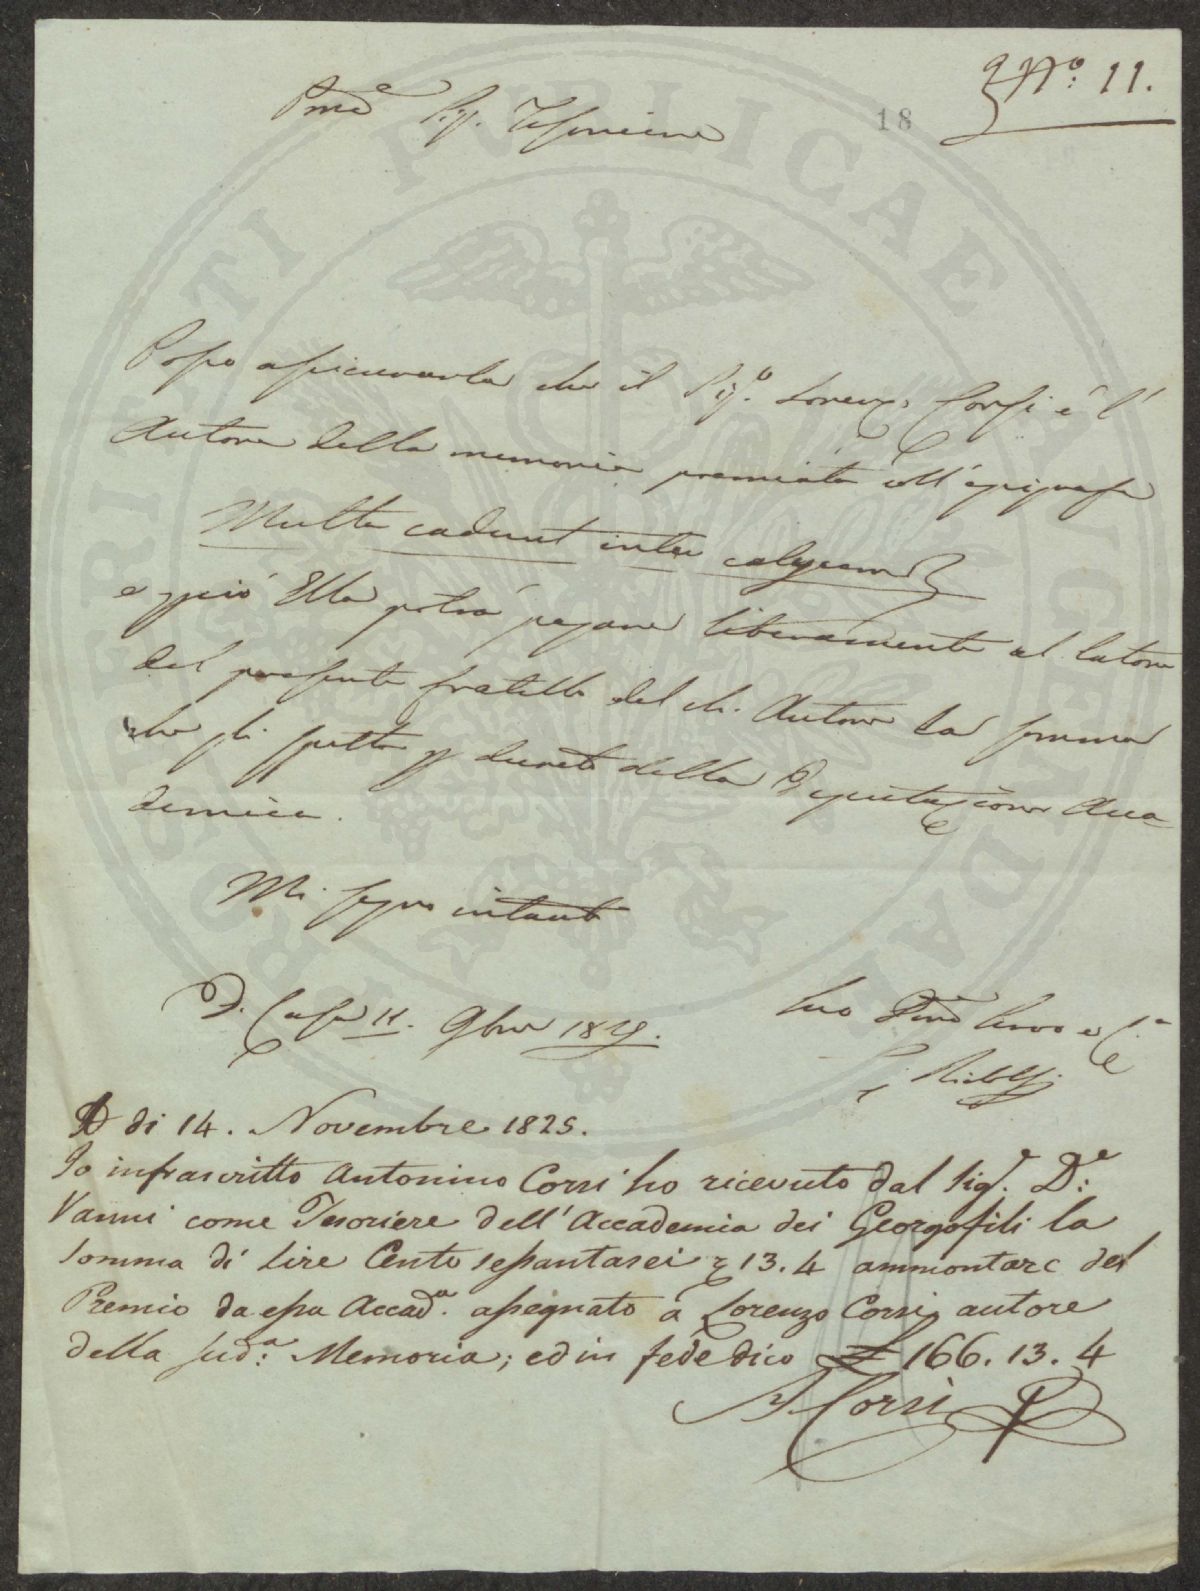 N.º 11.
18
Pmo Sig. Tesoriere
Posso assicurarla che il Sig.º Lorenzo Corsi è l'
Autore della memoria premiata coll'epigrafe
Multa cadunt inter
e perciò Ella potrà pagare liberamente al latore
del presente fratello del ch. Autore la somma
che gli spetta p decreto della Deputazione Acca
demica.
Mi segno intanto
D. Casa 11. 9bre 1825.
Suo
Ridolfi
A di 14. Novembre 1825.
Io infrascritto Antonino Corsi ho ricevuto dal Sig.e D.e
Vanni come Tesoriere dell'Accademia dei Georgofili la
Somma di Lire Cento sessantasei 13. 4 ammontare del
Premio da essa Accad.a assegnato a Lorenzo Corsi autore
della sud.a Memoria; ed in fede dico £ 166. 13. 4
A Corsi
PROSPERITATI PUBLICAE AUGENDAE